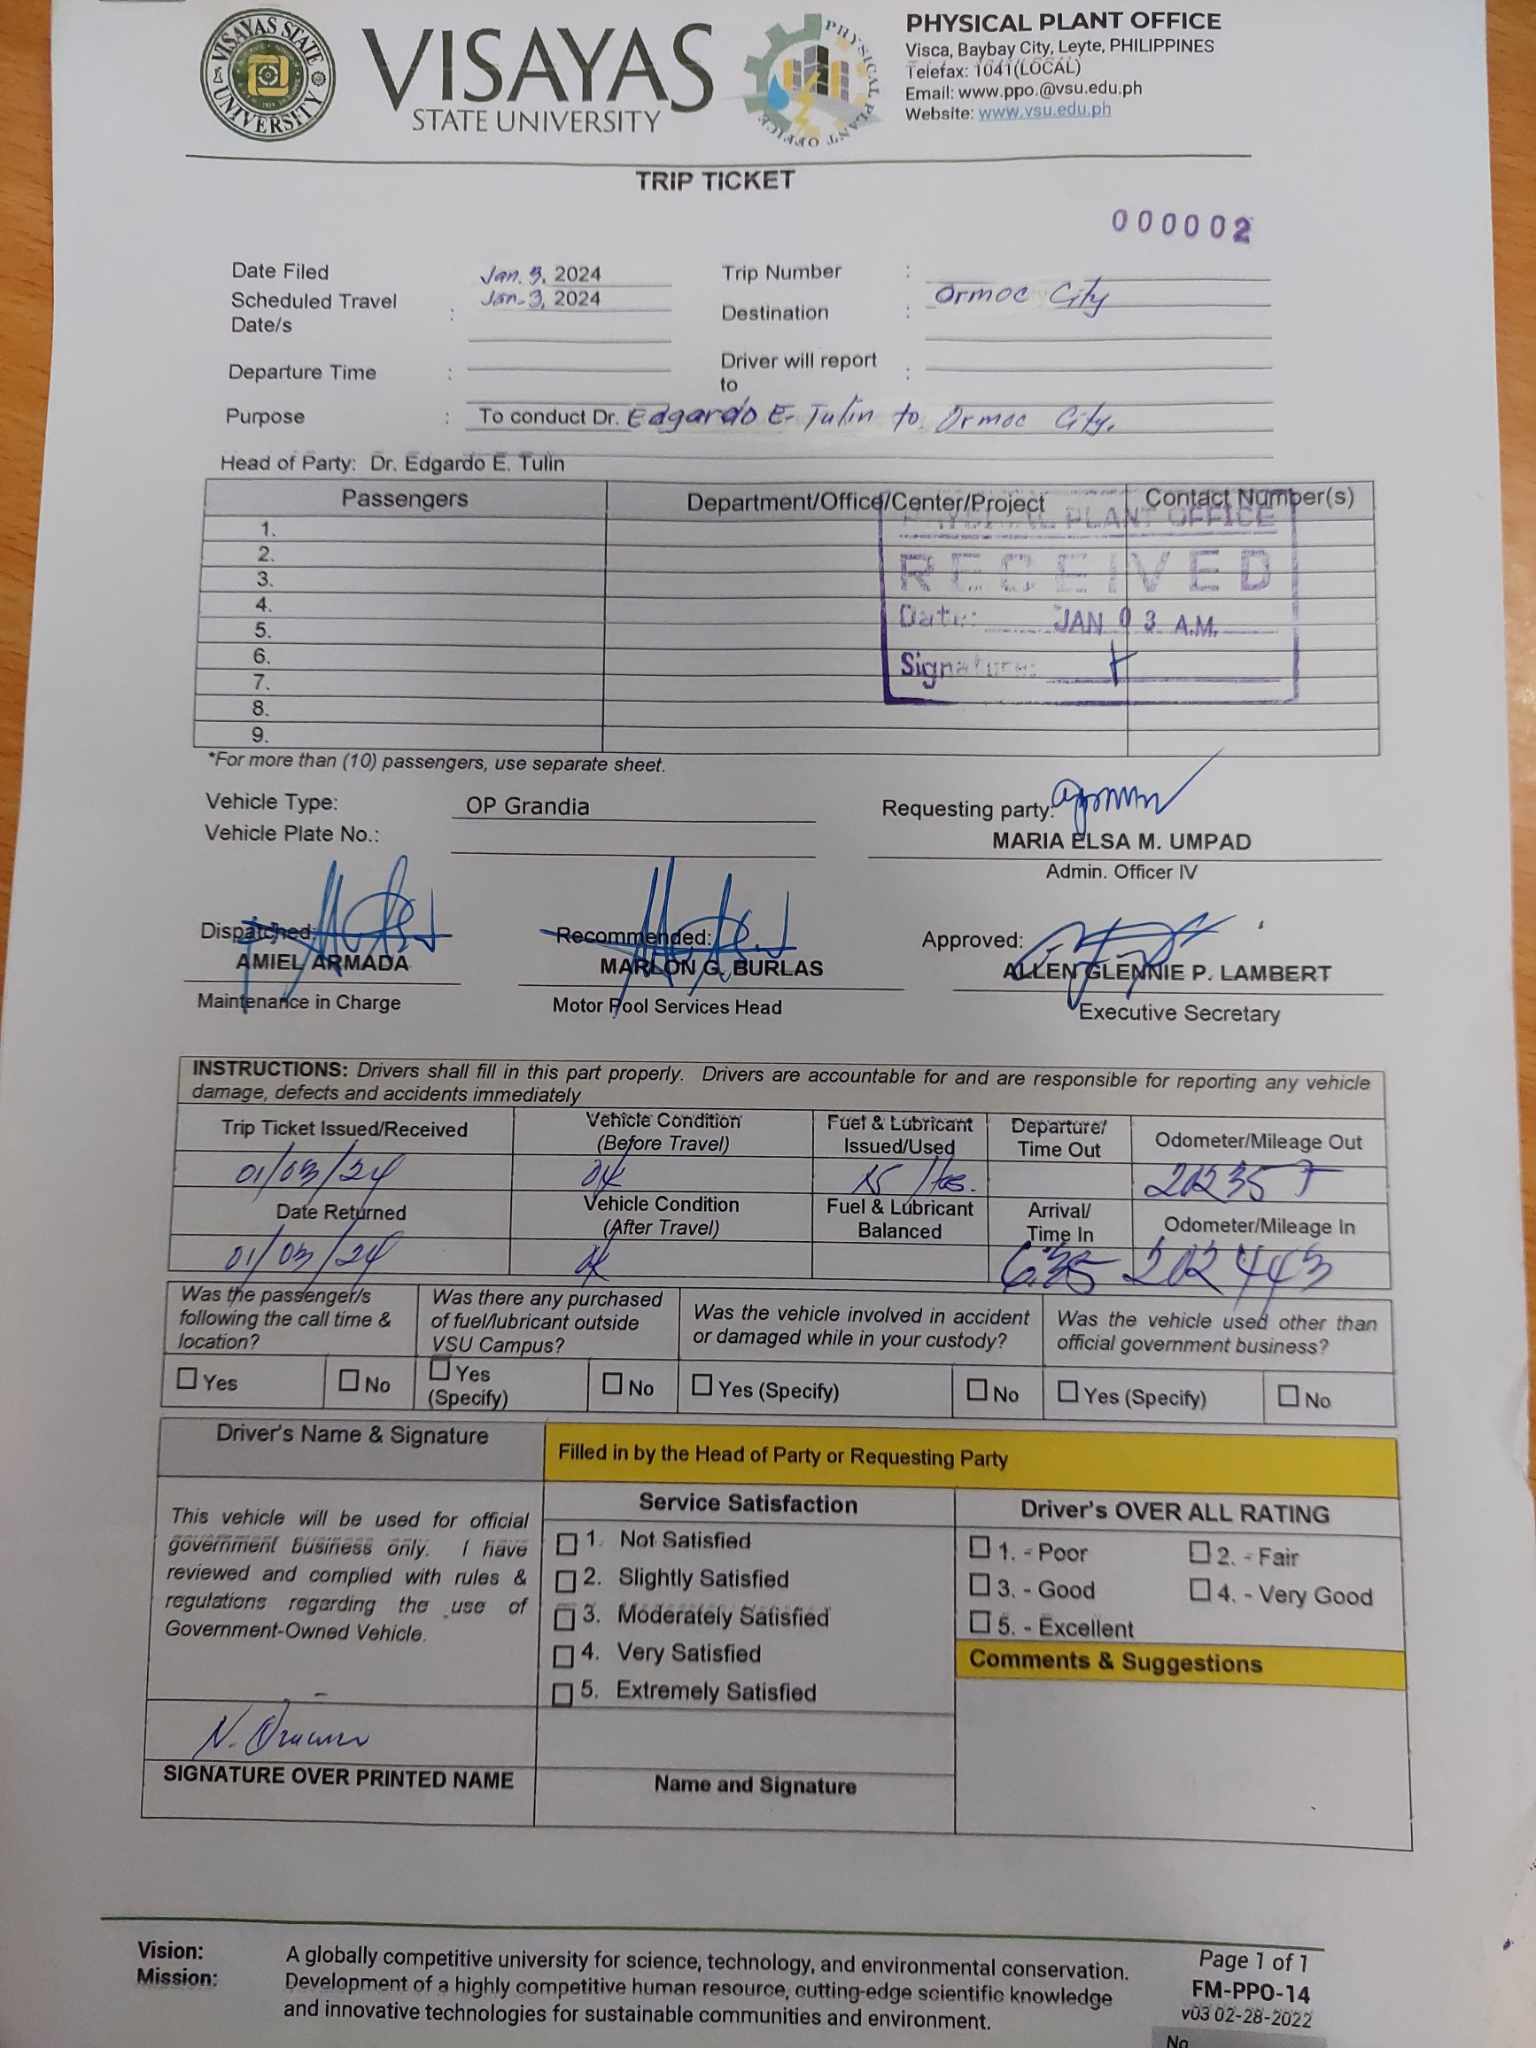 VISAYAS STATE UNIVERSITY
VISAYAS
STATE UNIVERSITY
PHYSICAL PLANT OFFICE
PHYSICAL PLANT OFFICE
Visca, Baybay City, Leyte, PHILIPPINES
Telefax: 1041(LOCAL)
Email: www.ppo.@vsu.edu.ph
Website: www.vsu.edu.ph
TRIP TICKET
000002
Date Filed Jan. 3, 2024 Trip Number :
Scheduled Travel Date/s : Jan. 3, 2024 Destination : Ormoc City
Departure Time : Driver will report to :
Purpose : To conduct Dr. Edgardo E. Tulin to Ormoc City.
Head of Party: Dr. Edgardo E. Tulin
Passengers Department/Office/Center/Project Contact Number(s)
1.
2.
3.
4.
5.
6.
7.
8.
9.
PHYSICAL PLANT OFFICE
RECEIVED
Date: JAN 03 A.M.
Signature:
*For more than (10) passengers, use separate sheet.
Vehicle Type: OP Grandia Requesting party:
Vehicle Plate No.: MARIA ELSA M. UMPAD
Admin. Officer IV
Dispatched: Recommended: Approved:
AMIEL ARMADA MARLON G. BURLAS ALLEN GLENNIE P. LAMBERT
Maintenance in Charge Motor Pool Services Head Executive Secretary
INSTRUCTIONS: Drivers shall fill in this part properly. Drivers are accountable for and are responsible for reporting any vehicle
damage, defects and accidents immediately
Trip Ticket Issued/Received Vehicle Condition (Before Travel) Fuel & Lubricant Issued/Used Departure/ Time Out Odometer/Mileage Out
01/03/24 ok
Date Returned Vehicle Condition (After Travel) Fuel & Lubricant Balanced Arrival/ Time In Odometer/Mileage In
01/03/24 ok 6:35 202443
Was the passenger/s following the call time & location?
Was there any purchased of fuel/lubricant outside VSU Campus?
Was the vehicle involved in accident or damaged while in your custody?
Was the vehicle used other than official government business?
Yes No Yes (Specify) No Yes (Specify) No Yes (Specify) No
Driver's Name & Signature
Filled in by the Head of Party or Requesting Party
This vehicle will be used for official
government business only. I have
reviewed and complied with rules &
regulations regarding the use of
Government-Owned Vehicle.
SIGNATURE OVER PRINTED NAME
Service Satisfaction
1. Not Satisfied
2. Slightly Satisfied
3. Moderately Satisfied
4. Very Satisfied
5. Extremely Satisfied
Name and Signature
Driver's OVER ALL RATING
1. - Poor 2. - Fair
3. - Good 4. - Very Good
5. - Excellent
Comments & Suggestions
Vision: A globally competitive university for science, technology, and environmental conservation.
Mission: Development of a highly competitive human resource, cutting-edge scientific knowledge
and innovative technologies for sustainable communities and environment.
Page 1 of 1
FM-PPO-14
v03 02-28-2022
No